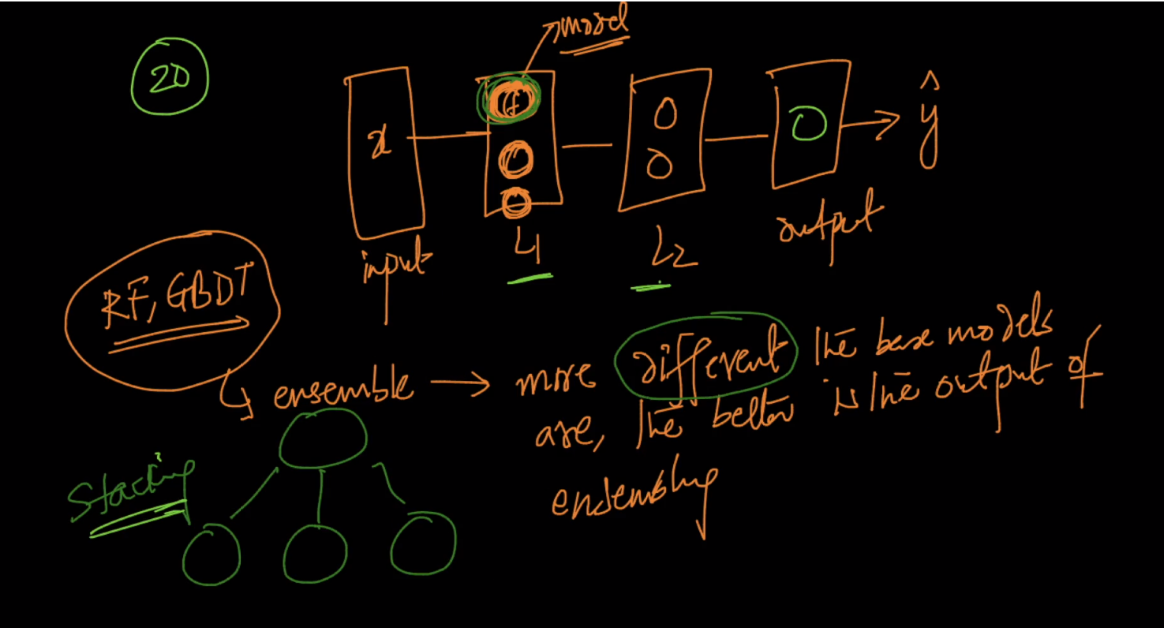 20
model
x
ŷ
input
L1
L2
output
RF, GBDT
ensemble → more different the base models
are, the better is the output of
ensembling
Stacking